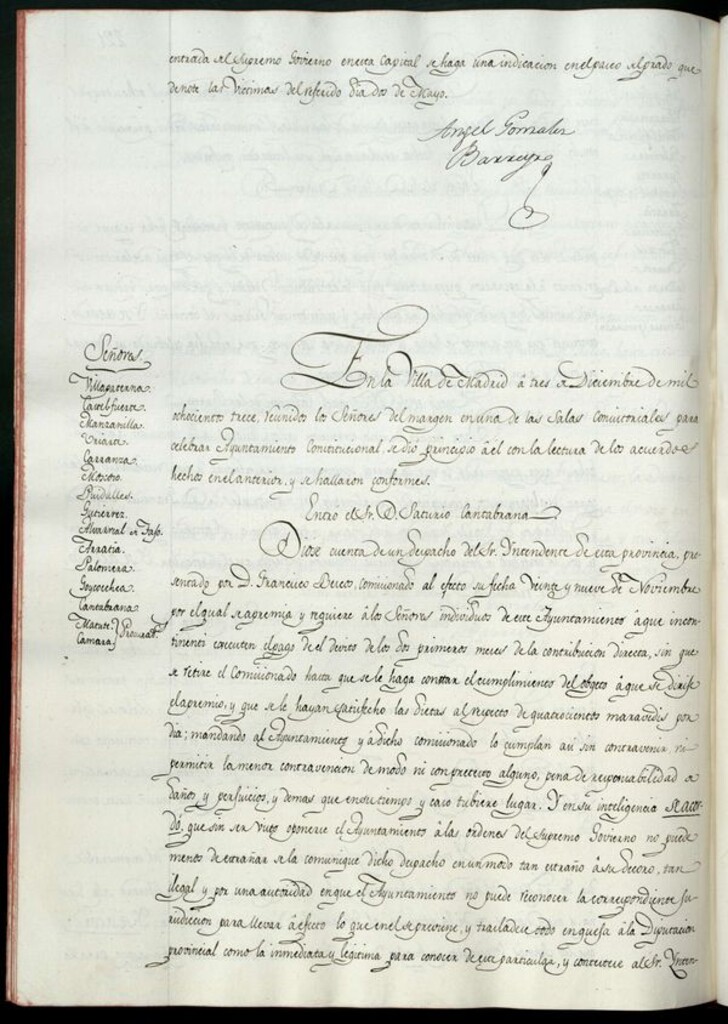 entrada del Supremo Govierno en esta Capital se haga una indicacion en el paseo del prado, que
denote las Victimas del referido dia dos de Mayo.
Angel Gonzalez
Barreyro
Señores.
Villapaterna.
Castelfuerte.
Manzanilla.
Uriarte.
Carranza.
Moscoso.
Ruidalles.
Gutierrez.
Arratia.
Palomera.
Goycoechea.
Cantabrana.
Matute.
Camara.
En la Villa de Madrid á tres de Diciembre de mil
ochocientos trece, reunidos los Señores del margen en una de las Salas Consistoriales para
celebrar Ayuntamiento Constitucional, se dió principio á él con la lectura de los acuerdos
hechos en el anterior, y se hallaron conformes.
Entró el Sr. D. Saturio Cantabrana.
Diose cuenta de un despacho del Sr. Yntendente de esta provincia, pre-
sentado por D. Francisco comisionado al efecto su fecha Veinte y nueve de Noviembre
por el qual se apremia y requiere á los Señores individuos de este Ayuntamiento á que incon-
tinenti executen el pago del devito de los dos primeros meses de la contribucion directa, sin que
se retire el Comisionado hasta que se le haga constar el cumplimiento del obgeto á que se dirije
el apremio, y que se le hayan satisfecho las dietas al respecto de quatrocientos maravedis por
dia; mandando al Ayuntamiento y á dicho comisionado lo cumplan asi sin contravenir, ni
permitir la menor contravencion de modo ni con pretexto alguno, pena de responsabilidad a
daños, y perjuicios, y demas que en su tiempo y caso tubiere lugar. Y en su inteligencia se acor-
dó, que sin ser visto oponerse el Ayuntamiento á las ordenes del Supremo Govierno no puede
menos de extrañar se la comunique dicho despacho en un modo tan extraño á su decoro, tan
ilegal y por una autoridad en que el Ayuntamiento no puede reconocer la correspondiente Ju-
risdiccion para llevar á efecto lo que en el se previene, y traslade todo en quexa á la Diputacion
provincial como la inmediata y legitima para conocer de este particular, y conteste al Sr. Ynten-